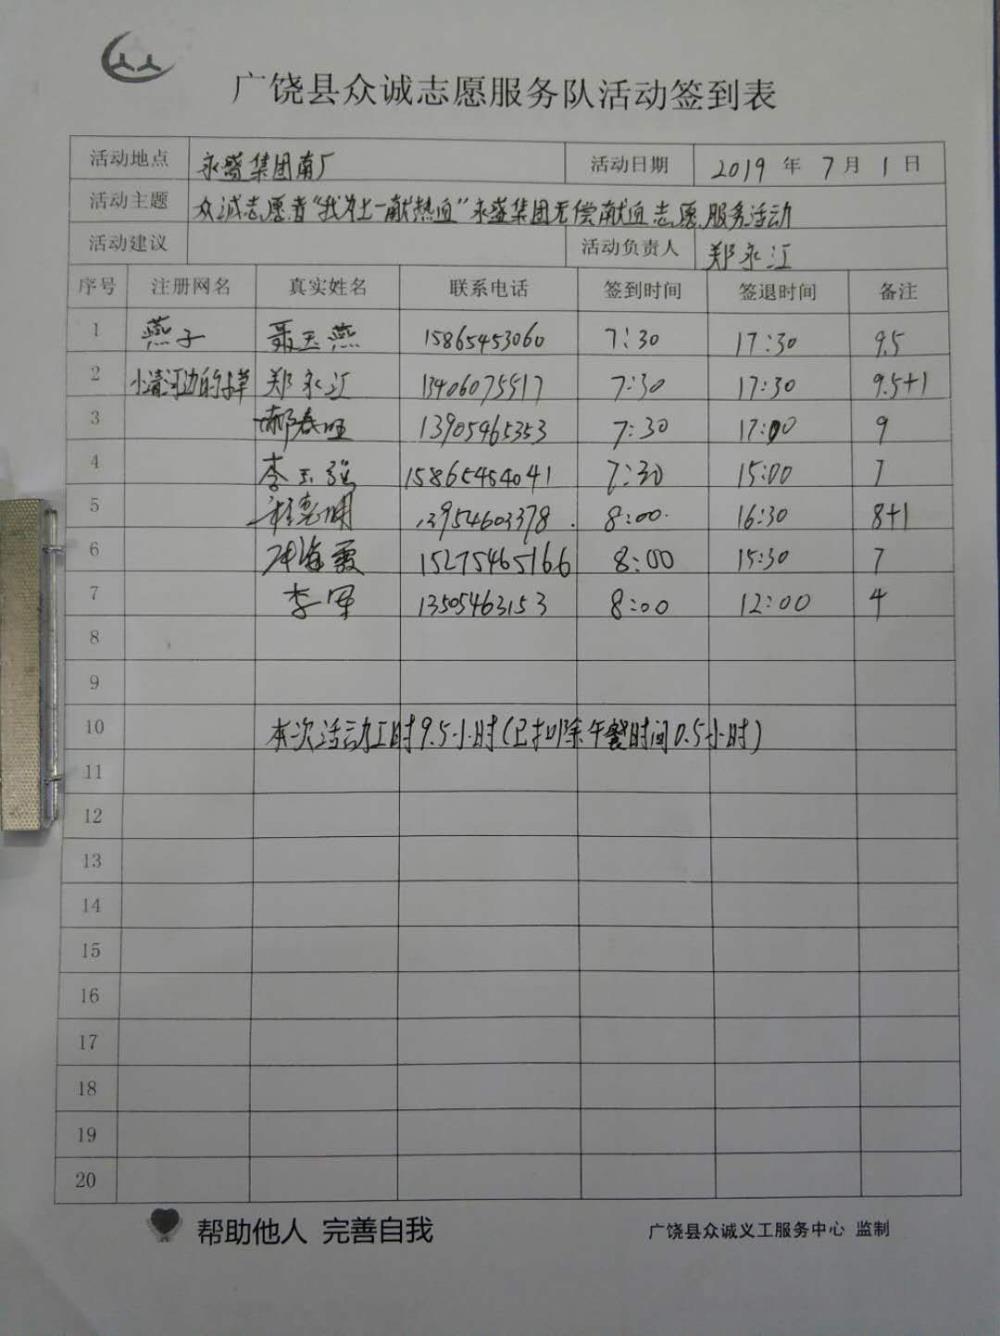 广饶县众诚志愿服务队活动签到表
活动地点 永盛集团南厂 活动日期 2019 年 7 月 1 日
活动主题 众诚志愿者“我为七一献热血”永盛集团无偿献血志愿服务活动
活动建议 活动负责人 郑永江
序号 注册网名 真实姓名 联系电话 签到时间 签退时间 备注
1 燕子 聂玉燕 15865453060 7:30 17:30 9.5
2 小清河边的小草 郑永江 13406075517 7:30 17:30 9.5+1
3 郝春旺 13905465353 7:30 17:00 9
4 李玉强 15865454041 7:30 15:00 7
5 13954603378 8:00 16:30 8+1
6 海霞 15275465166 8:00 15:30 7
7 李军 13505463153 8:00 12:00 4
8
9
10 本次活动工时9.5小时(已扣除午餐时间0.5小时)
11
12
13
14
15
16
17
18
19
20
帮助他人 完善自我 广饶县众诚义工服务中心 监制